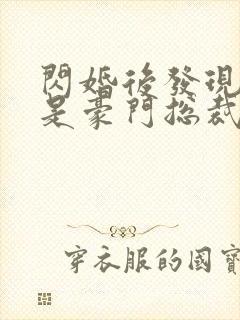 閃婚後發現
是豪門總裁
穿衣服的國寶